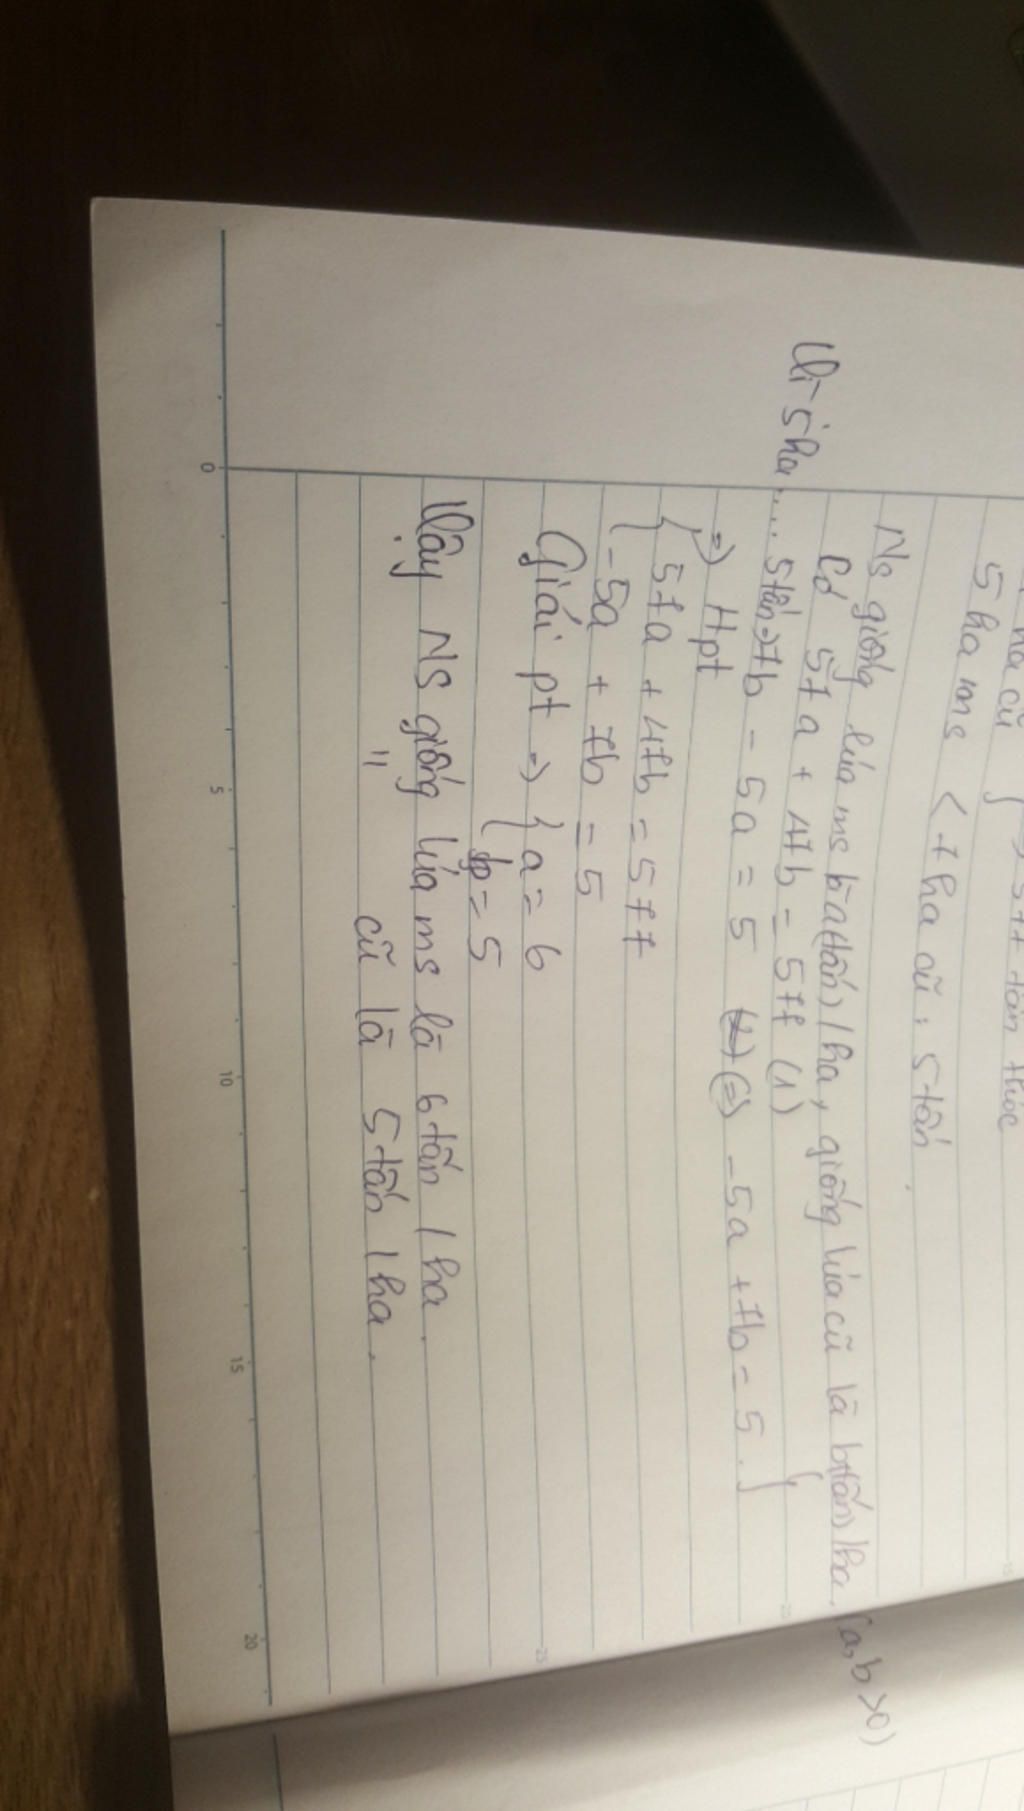 ha cũ } => 577 tấn thóc
5 ha ms < 7 ha cũ : 5 tấn.
Ns giống lúa ms là a(tấn)/ha, giống lúa cũ là b(tấn)/ha. (a,b >0)
Có 57a + 47b = 577 (1)
Vì 5ha ... 5tấn => 7b - 5a = 5 (=) -5a + 7b = 5. }
=> Hpt
{ 57a + 47b = 577
-5a + 7b = 5
Giải pt => { a = 6
b = 5
Vậy Ns giống lúa ms là 6 tấn / ha.
" cũ là 5 tấn / ha.
0 5 10 15 20
15
20
25